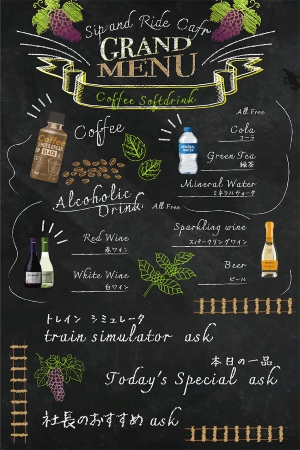 Sip and Ride Cafe
GRAND
MENU
Coffee Softdrink
All Free
Coffee
Cola
コーラ
Green Tea
緑茶
Mineral Water
ミネラルウォータ
Alcoholic
Drink
All Free
Red Wine
赤ワイン
Sparkling wine
スパークリングワイン
White Wine
白ワイン
Beer
ビール
トレイン シミュレータ
train simulator ask
本日の一品
Today's Special ask
社長のおすすめ ask